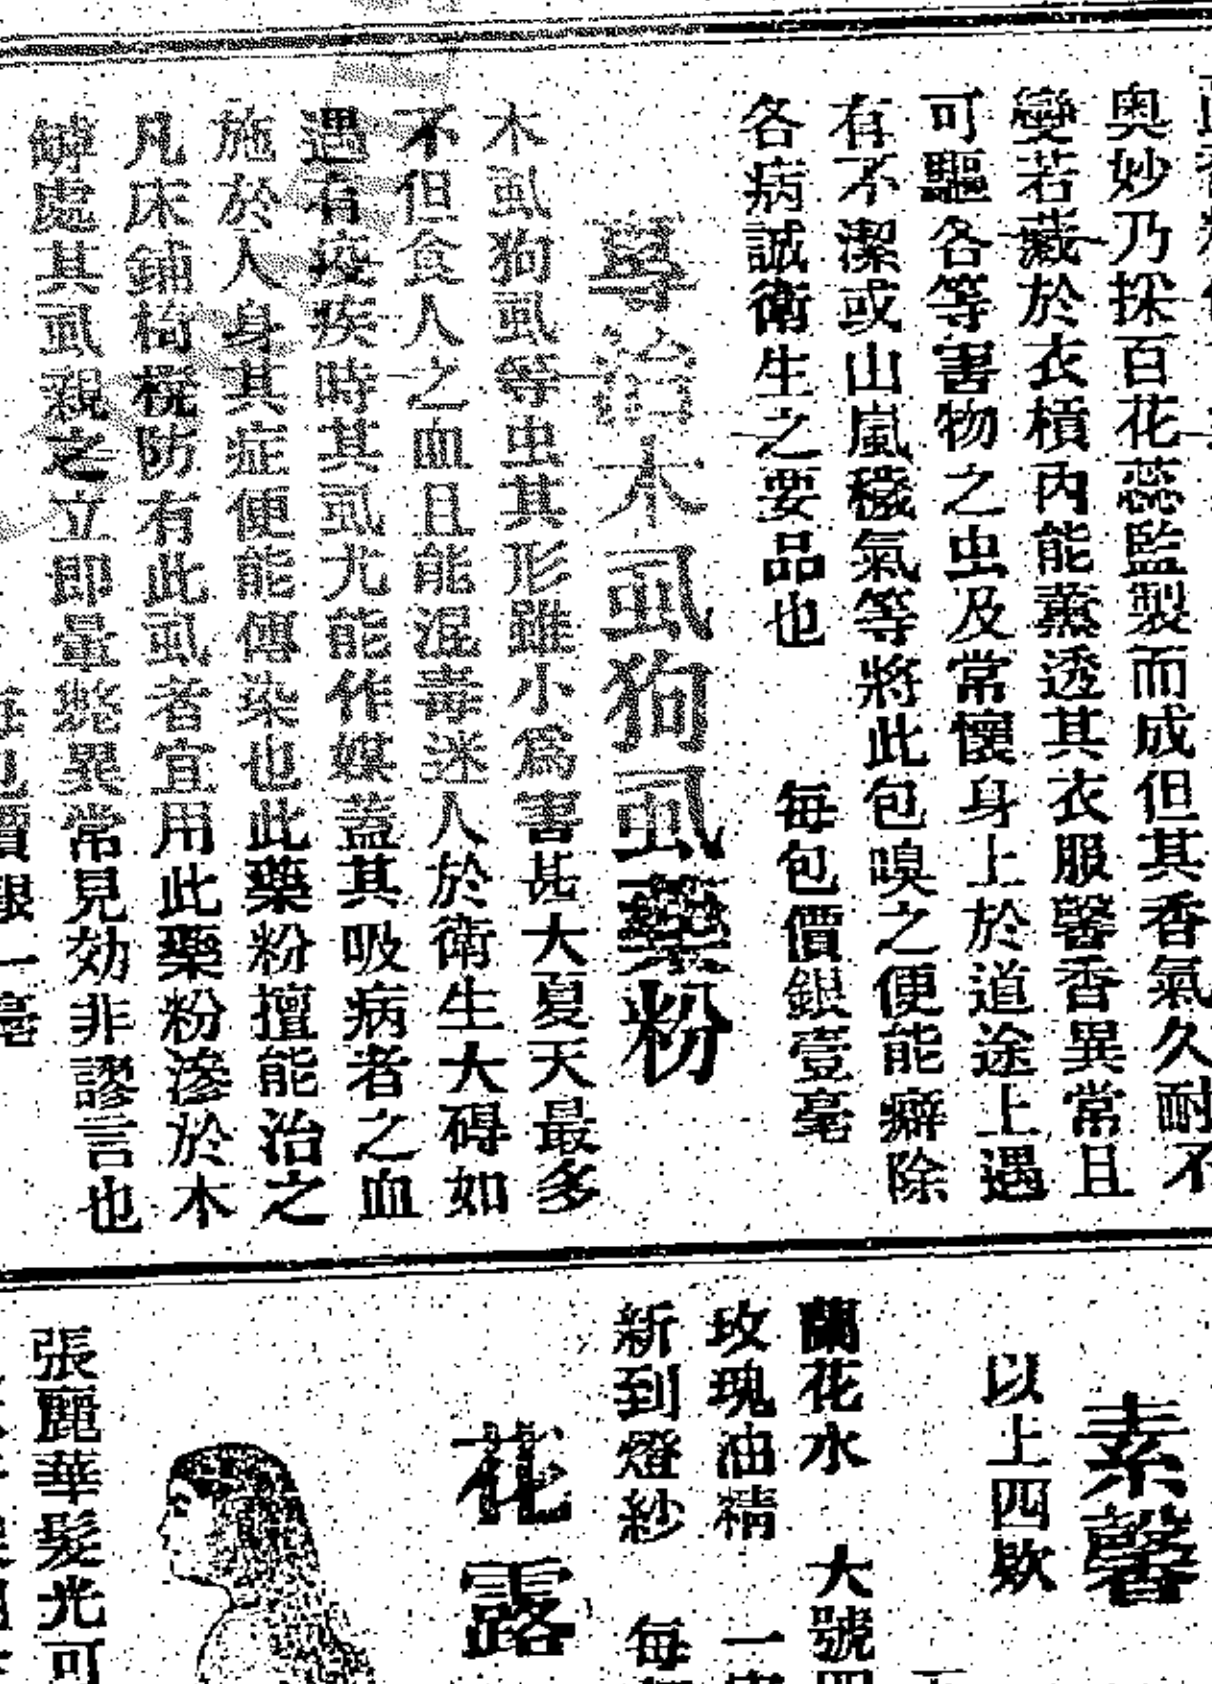 奥妙乃採百花蕊監製而成但其香氣久耐不
變若藏於衣櫃內能薰透其衣服馨香異常且
可驅各等害物之虫及常懷身上於道途上遇
有不潔或山嵐穢氣等將此包嗅之便能癖除
各病誠衛生之要品也 每包價銀壹毫
專治木虱狗虱藥粉
木虱狗虱等虫其形雖小為害甚大夏天最多
不但食人之血且能混毒迷人於衛生大碍如
遇有疫疾時其虱尤能作媒蓋其吸病者之血
施於人身其症便能傳染也此藥粉擅能治之
凡床鋪椅櫈防有此虱者宜用此藥粉滲於木
罅處其虱親之立即暈斃異常見効非謬言也
價銀一毫
素馨
以上四欵
蘭花水 大號
玫瑰油精 一
新到燈紗 每
花露
張麗華髮光可